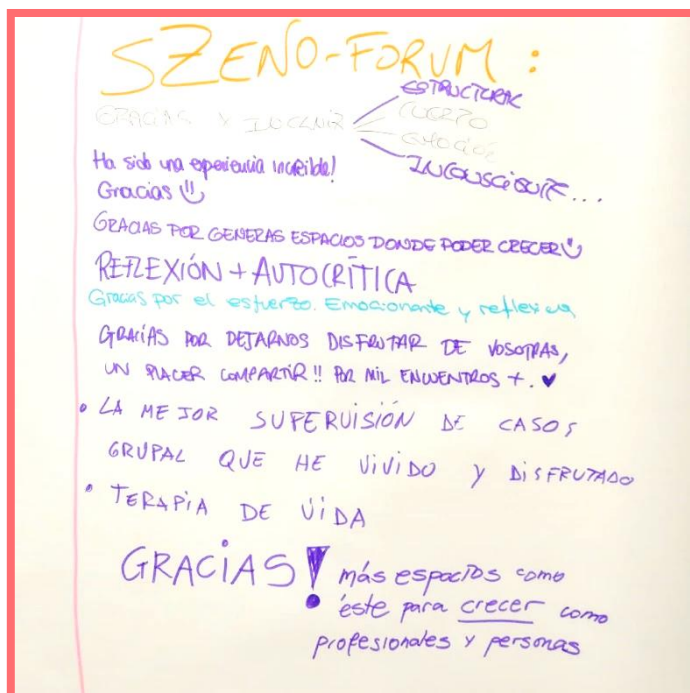 SZENO-FORUM:
GRACIAS X INOCLUIR
ESTRUCTURAL
CUERPO
EMOCIÓN
INCONSCIENTE...
Ha sido una experiencia increíble!
Gracias
GRACIAS POR GENERAR ESPACIOS DONDE PODER CRECER
REFLEXIÓN + AUTOCRÍTICA
Gracias por el esfuerzo. Emocionante y reflexiva
GRACIAS POR DEJARNOS DISFRUTAR DE VOSOTRAS,
UN PLACER COMPARTIR!! POR MIL ENCUENTROS +. ♥
• LA MEJOR SUPERVISIÓN DE CASOS
GRUPAL QUE HE VIVIDO Y DISFRUTADO
• TERAPIA DE VIDA
GRACIAS!
más espacios como
éste para crecer como
profesionales y personas